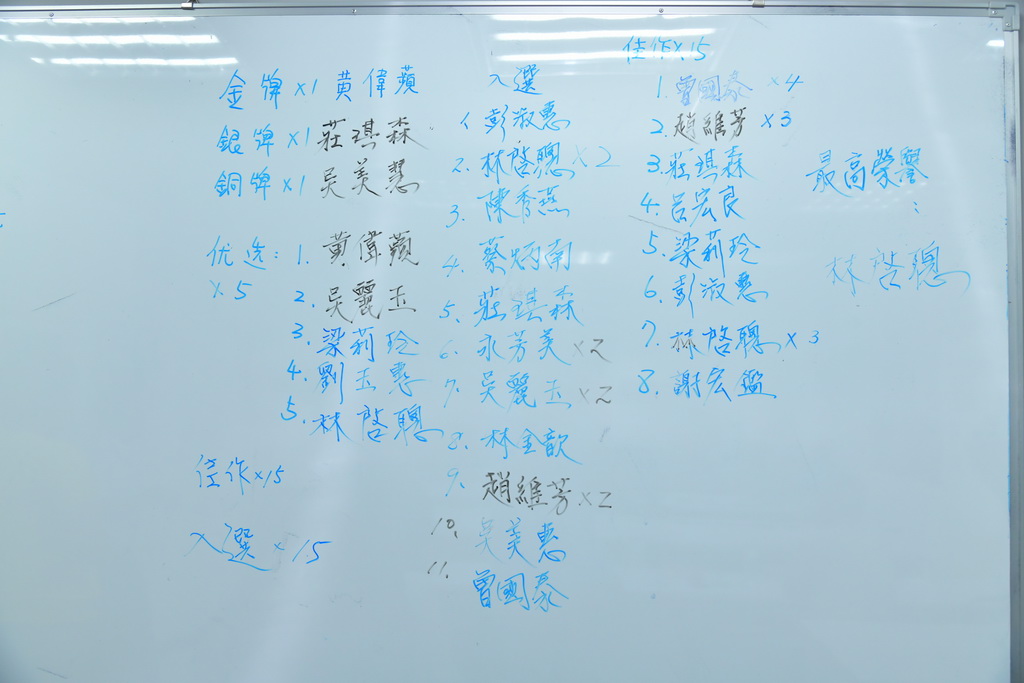 金牌×1 黃偉蘋
銀牌×1 莊琪森
銅牌×1 吳美慧
优选: 1. 黃偉蘋
×5
2. 吳麗玉
3. 梁莉玲
4. 劉玉惠
5. 林啓聰
佳作×15
入選×15
入選
1. 彭淑惠
2. 林啓聰×2
3. 陳秀燕
4. 蔡炳南
5. 莊琪森
6. 永芳美×2
7. 吳麗玉×2
8. 林金歆
9. 趙維芳×2
10. 吳美惠
11. 曾國泰
佳作×15
1. 曾國泰×4
2. 趙維芳×3
3. 莊琪森
4. 呂宏良
5. 梁莉玲
6. 彭淑惠
7. 林啓聰×3
8. 謝宏鑑
最高榮譽
:
林啓聰